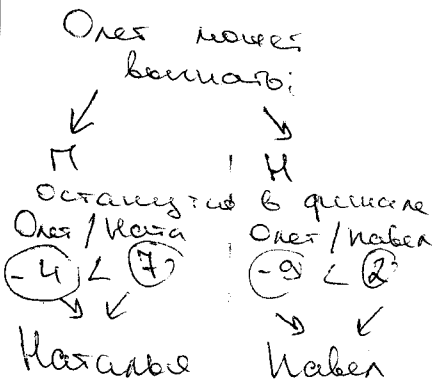 Олег может
выгнать:
П Н
останутся в финале
Олег/Ната Олег/Павел
-4 < 7 -9 < 2
Наталья Павел